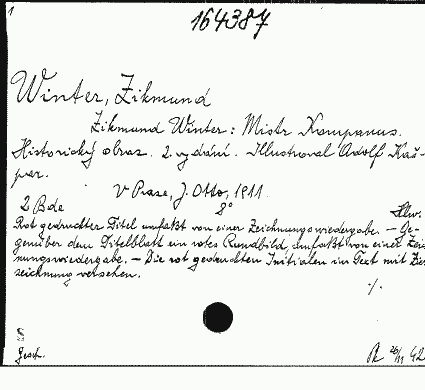 1
164387
Winter, Zikmund
Zikmund Winter: Mistr Kampanus.
Historický obraz. 2. vydání. Illustroval Adolf Kaš-
par.
V Praze, J. Otto, 1911.
2 Bde 8° Hlw.
Rot gedruckter Titel umfaßt von einer Zeichnungswiedergabe. - Ge-
genüber dem Titelblatt ein rotes Rundbild, umfaßt von einer Zeich-
nungswiedergabe. - Die rot gedruckten Initialen im Text mit Zier-
zeichnung versehen.
./.
Gesch.
42